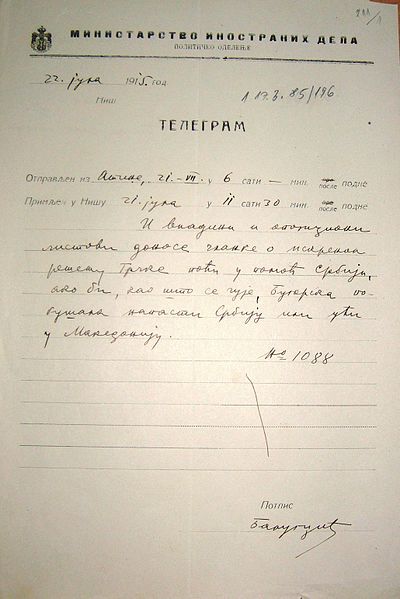 МИНИСТАРСТВО ИНОСТРАНИХ ДЕЛА
ПОЛИТИЧКО ОДЕЛЕЊЕ
22. јула 1915. год.
Ниш
ТЕЛЕГРАМ
Отправљен из Атине, 21 - VII у 6 сати — мин. пре после подне
Примљен у Нишу 21. јула у 11 сати 30 мин. пре после подне
И владини и опозициони
листови доносе чланке о
Грчке поћи у помоћ Србији,
ако би, као што се чује, Бугарска по-
кушала напасти Србију или ући
у Македонију.
№ 1088
Потпис
Балугџић